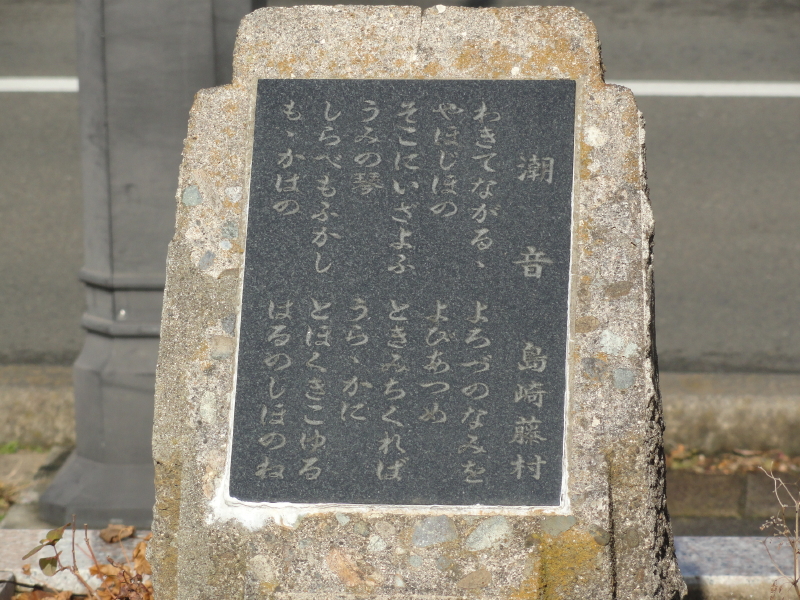 潮音　島崎藤村
わきてながるゝ
やほじほの
そこにいざよふ
うみの琴
しらべもふかし
もゝかはの
よろづのなみを
よびあつめ
ときみちくれば
うらゝかに
とほくきこゆる
はるのしほのね